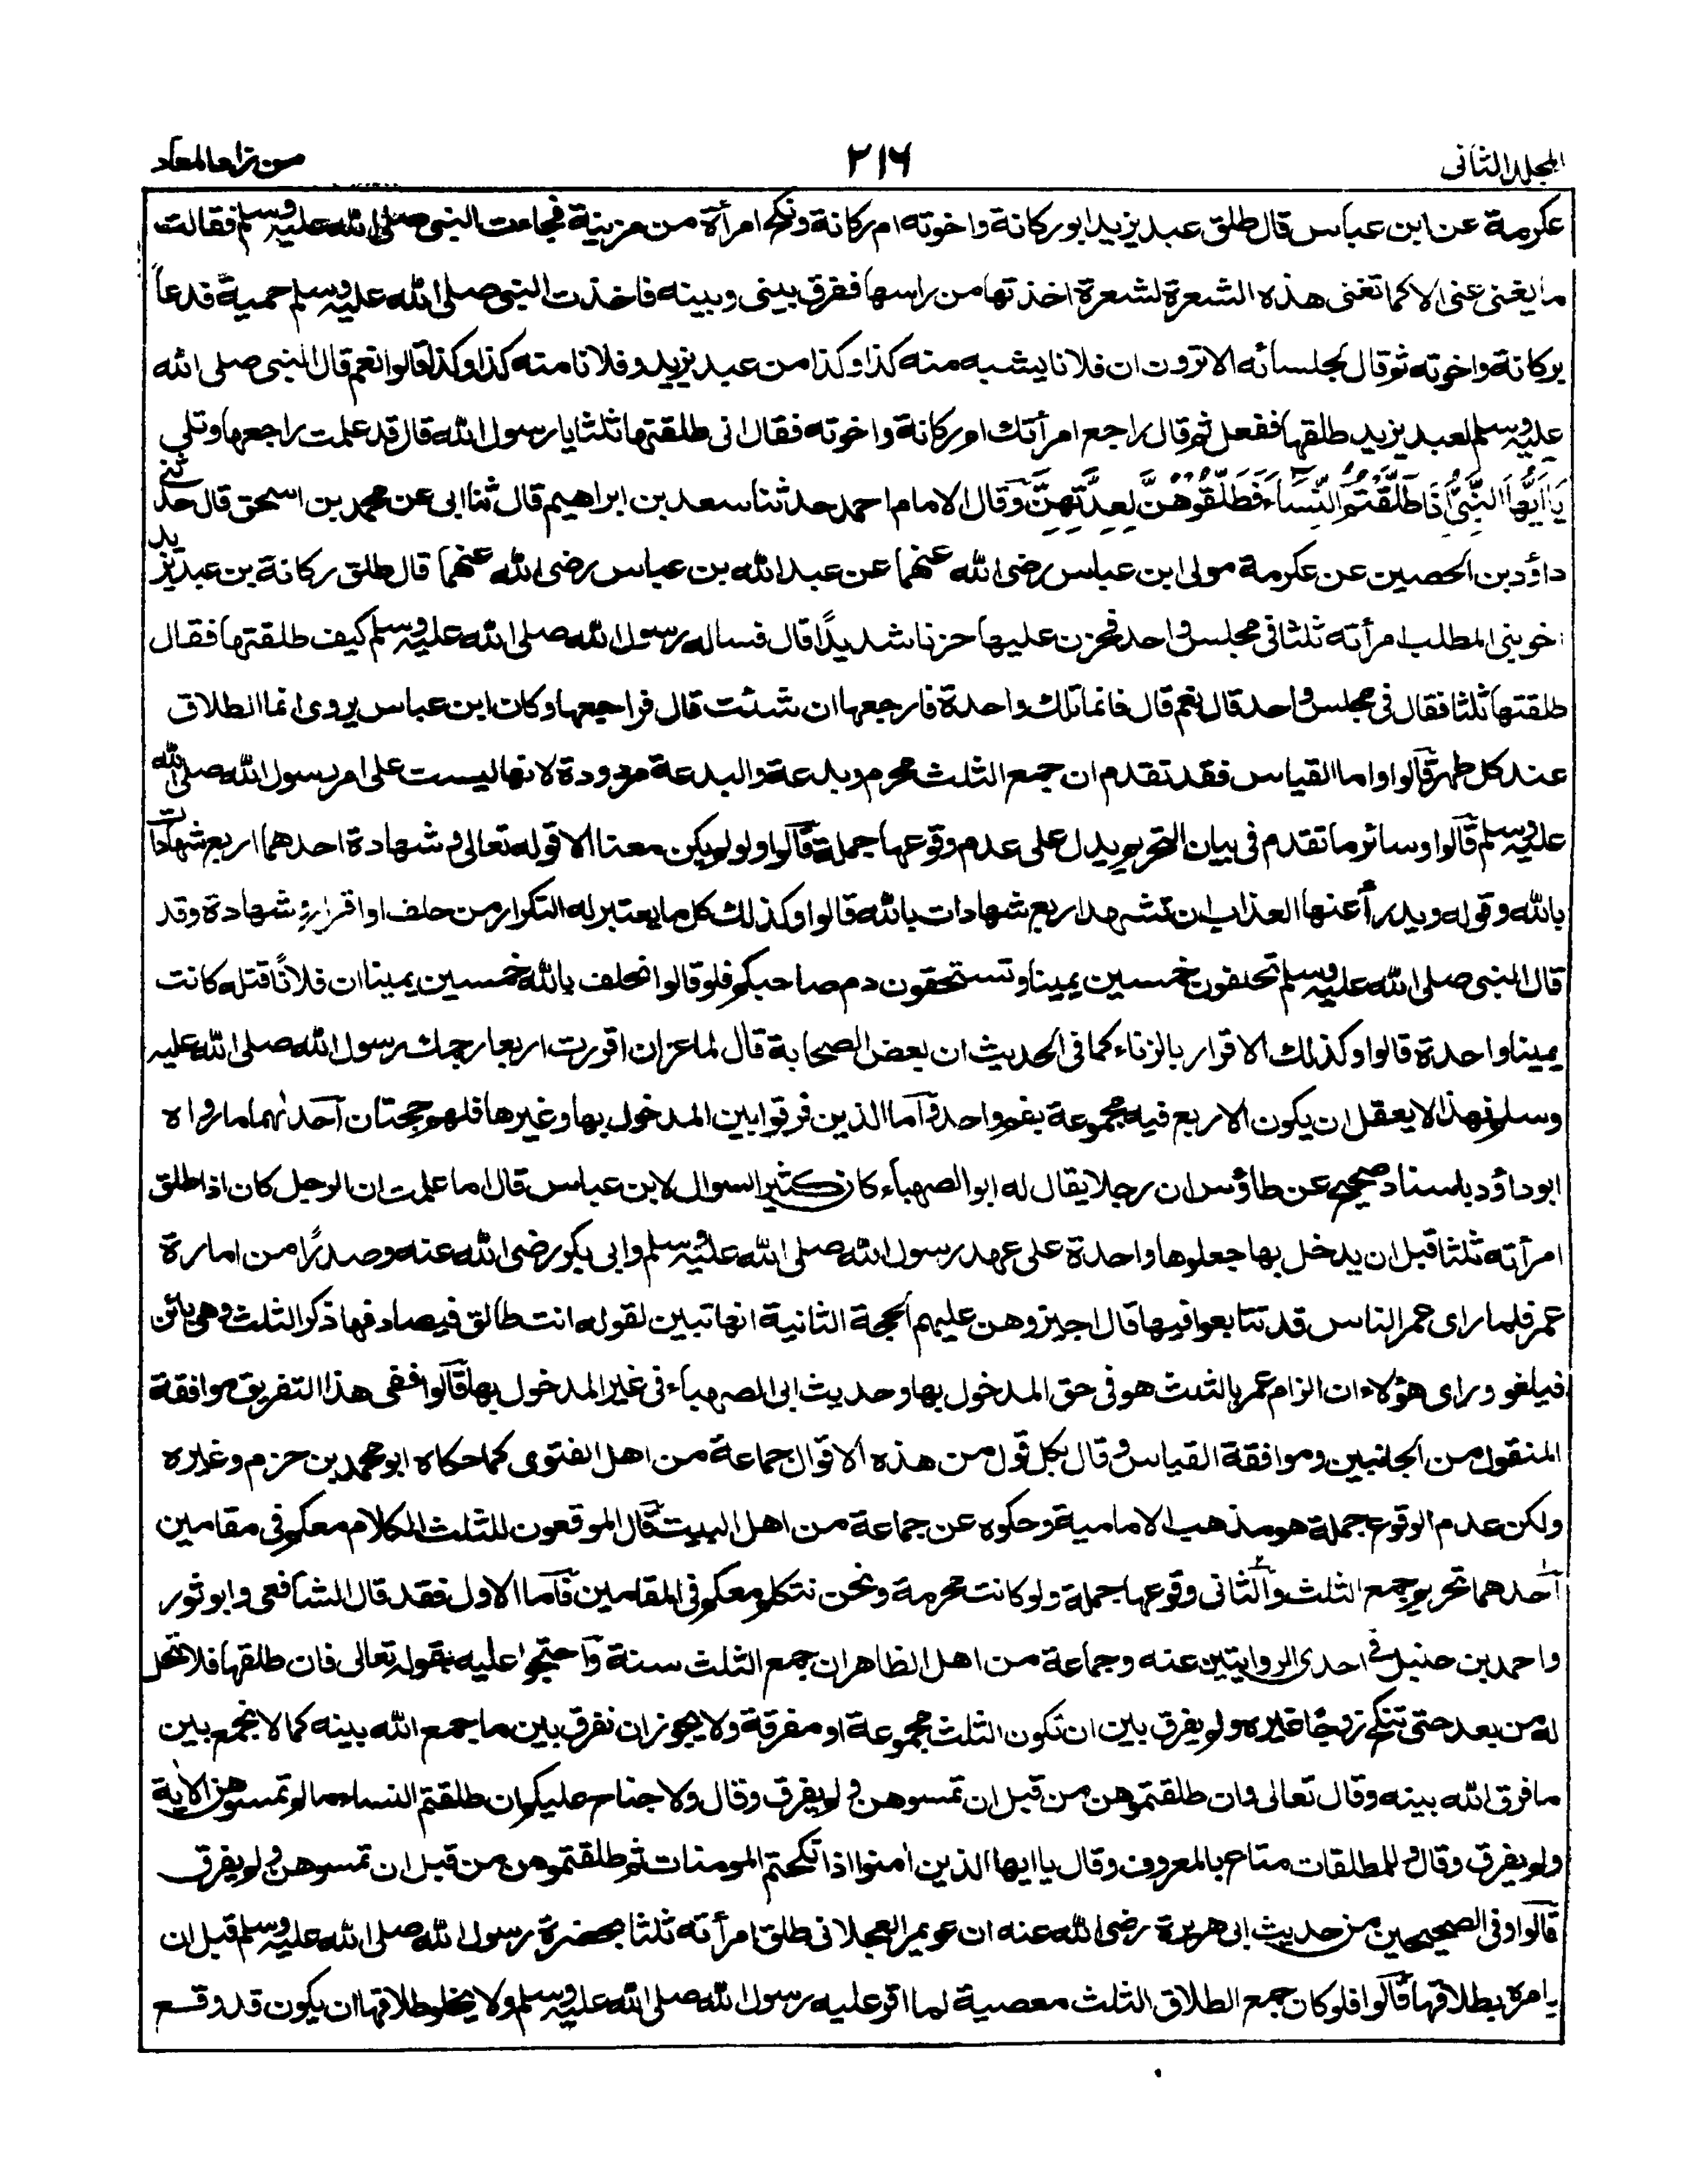 المجلد الثانى
٢١٦
من زاد المعاد
عكرمة عن ابن عباس قال طلق عبد يزيد ابو ركانة واخوته ام ركانة ونكح امرأة من مزينة فجاءت النبى صلى الله عليه وسلم فقالت
ما يغنى عنى الا كما تغنى هذه الشعرة لشعرة اخذتها من راسها ففرق بينى وبينه فاخذت النبى صلى الله عليه وسلم حمية فدعا
بركانة واخوته ثم قال لجلسائه الا ترون ان فلانا يشبه منه كذا وكذا من عبد يزيد وفلانا منه كذا وكذا قالوا نعم قال النبى صلى الله
عليه وسلم لعبد يزيد طلقها ففعل ثم قال راجع امرأتك ام ركانة واخوته فقال انى طلقتها ثلثا يا رسول الله قال قد علمت راجعها وتلى
يَا اَيُّهَا النَّبِىُّ اِذَا طَلَّقْتُمُ النِّسَاءَ فَطَلِّقُوْهُنَّ لِعِدَّتِهِنَّ وقال الامام احمد حدثنا سعد بن ابراهيم قال ثنا ابى عن محمد بن اسحق قال حدثنى
داؤد بن الحصين عن عكرمة مولى ابن عباس رضى الله عنهما عن عبد الله بن عباس رضى الله عنهما قال طلق ركانة بن عبد يزيد
اخو بنى المطلب امرأته ثلثا فى مجلس واحد فحزن عليها حزنا شديدًا قال فساله رسول الله صلى الله عليه وسلم كيف طلقتها فقال
طلقتها ثلثا فقال فى مجلس واحد قال نعم قال فانما تلك واحدة فارجعها ان شئت قال فراجعها وكان ابن عباس يروى انما الطلاق
عند كل طهر قالوا واما القياس فقد تقدم ان جمع الثلث محرم وبدعة والبدعة مردودة لانها ليست على امر رسول الله صلى الله
عليه وسلم قالوا وسائر ما تقدم فى بيان التحريم يدل على عدم وقوعها جملة قالوا ولو لم يكن معنا الا قوله تعالى فشهادة احدهما اربع شهادات
بالله وقوله ويدرأ عنها العذاب ان تشهد اربع شهادات بالله قالوا وكذلك كل ما يعتبر له التكرار من حلف او اقرار او شهادة وقد
قال النبى صلى الله عليه وسلم تحلفون خمسين يمينا وتستحقون دم صاحبكم فلو قالوا نحلف بالله خمسين يمينا ان فلانًا قتله كانت
يمينا واحدة قالوا وكذلك الاقرار بالزناء كما فى الحديث ان بعض الصحابة قال لماعز ان اقررت اربعا رجمك رسول الله صلى الله عليه
وسلم فهذا لا يعقل ان يكون الاربع فيه مجموعة بفم واحد واما الذين فرقوا بين المدخول بها وغيرها فلهم حجتان احدٰهما ما رواه
ابو داؤد باسناد صحيح عن طاؤس ان رجلا يقال له ابو الصهباء كان كثير السوال لابن عباس قال اما علمت ان الرجل كان اذا طلق
امرأته ثلثا قبل ان يدخل بها جعلوها واحدة على عهد رسول الله صلى الله عليه وسلم وابى بكر رضى الله عنه وصدرًا من امارة
عمر فلما راى عمر الناس قد تتابعوا فيها قال اجيزوهن عليهم الحجة الثانية انها تبين لقوله انت طالق فيصادفها ذكر الثلث وهى بائن
فيلغو وراى هؤلاء ان الزام عمر بالثلث هو فى حق المدخول بها وحديث ابى الصهباء فى غير المدخول بها قالوا ففى هذا التفريق موافقة
المنقول من الجانبين وموافقة القياس وقال بكل قول من هذه الاقوال جماعة من اهل الفتوى كما حكاه ابو محمد بن حزم وغيره
ولكن عدم الوقوع جملة هو مذهب الامامية وحكوه عن جماعة من اهل البيت قال الموقعون للثلث الكلام معكم فى مقامين
احدهما تحريم جمع الثلث والثانى وقوعها جملة ولو كانت محرمة ونحن نتكلم معكم فى المقامين فاما الاول فقد قال الشافعى وابو ثور
واحمد بن حنبل فى احدى الروايتين عنه وجماعة من اهل الظاهر ان جمع الثلث سنة واحتجوا عليه بقوله تعالى فان طلقها فلا تحل
له من بعد حتى تنكح زوجًا غيره ولم يفرق بين ان تكون الثلث مجموعة او مفرقة ولا يجوز ان نفرق بين ما جمع الله بينه كما لا نجمع بين
ما فرق الله بينه وقال تعالى وان طلقتموهن من قبل ان تمسوهن ولم يفرق وقال ولا جناح عليكم ان طلقتم النساء ما لم تمسوهن الاٰية
ولم يفرق وقال وللمطلقات متاع بالمعروف وقال يا ايها الذين امنوا اذا نكحتم المومنات ثم طلقتموهن من قبل ان تمسوهن ولم يفرق
قالوا وفى الصحيحين من حديث ابى هريرة رضى الله عنه ان عويمر العجلانى طلق امرأته ثلثا بحضرة رسول الله صلى الله عليه وسلم قبل ان
يامره بطلاقها قالوا فلو كان جمع الطلاق الثلث معصية لما اقر عليه رسول الله صلى الله عليه وسلم ولا يخلو طلاقها ان يكون قد وقع